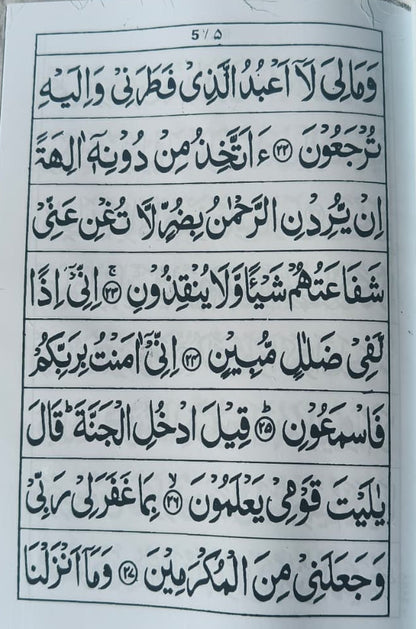 5/۵
وَمَالِیَ لَاۤ اَعْبُدُ الَّذِیْ فَطَرَنِیْ وَاِلَیْهِ
تُرْجَعُوْنَ ﴿۲۲﴾ ءَاَتَّخِذُ مِنْ دُوْنِهٖۤ اٰلِهَةً
اِنْ یُّرِدْنِ الرَّحْمٰنُ بِضُرٍّ لَّا تُغْنِ عَنِّیْ
شَفَاعَتُهُمْ شَیْـًٔا وَّلَا یُنْقِذُوْنِ ﴿۲۳﴾ۚ اِنِّیْۤ اِذًا
لَّفِیْ ضَلٰلٍ مُّبِیْنٍ ﴿۲۴﴾ اِنِّیْۤ اٰمَنْتُ بِرَبِّكُمْ
فَاسْمَعُوْنِ ﴿۲۵﴾ؕ قِیْلَ ادْخُلِ الْجَنَّةَ ؕ قَالَ
یٰلَیْتَ قَوْمِیْ یَعْلَمُوْنَ ﴿۲۶﴾ۙ بِمَا غَفَرَلِیْ رَبِّیْ
وَجَعَلَنِیْ مِنَ الْمُكْرَمِیْنَ ﴿۲۷﴾ وَمَاۤ اَنْزَلْنَا